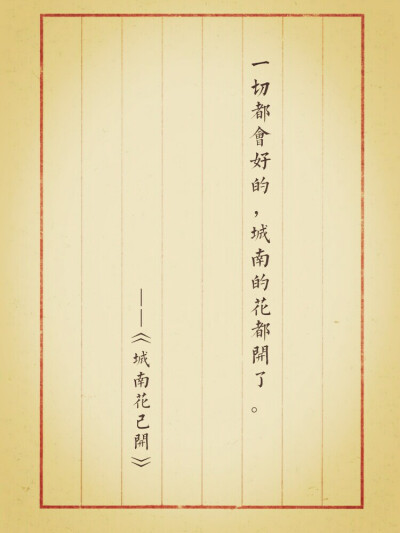 一切都會好的，城南的花都開了。
——《城南花已開》